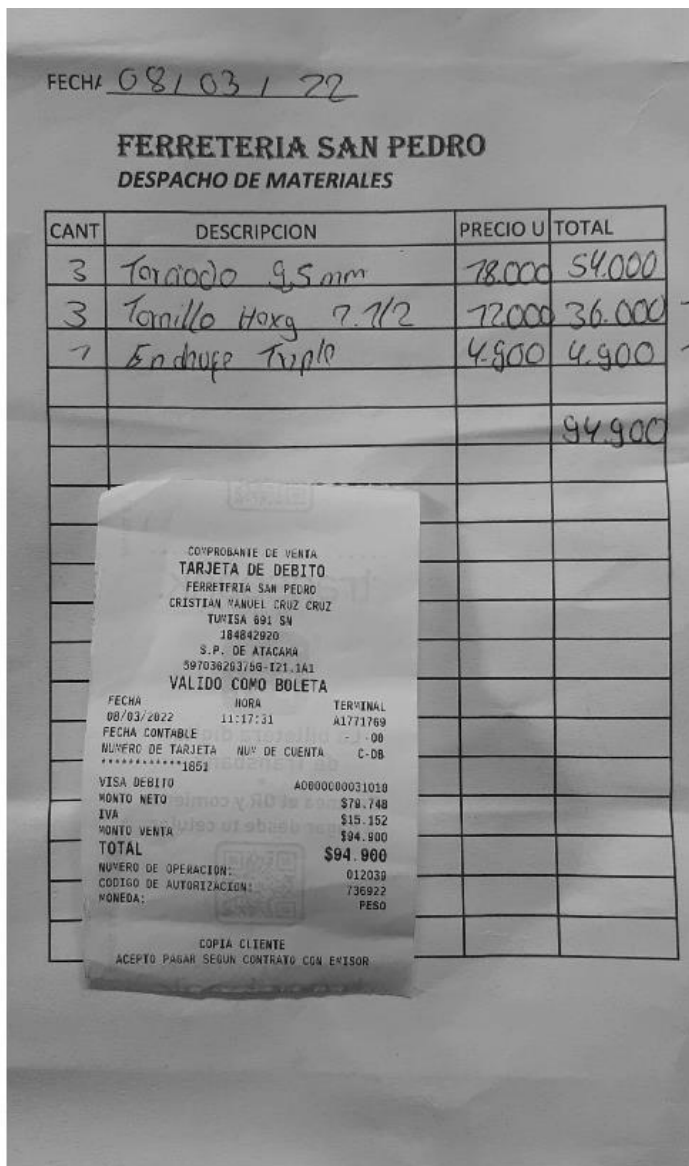 FECHA 08 / 03 / 22
FERRETERIA SAN PEDRO
DESPACHO DE MATERIALES
CANT DESCRIPCION PRECIO U TOTAL
3 Torciodo 9,5mm 18.000 54.000
3 Tornillo Hoxg 1.1/2 12.000 36.000
1 Enchufe Triple 4.900 4.900
94.900
COMPROBANTE DE VENTA
TARJETA DE DEBITO
FERRETERIA SAN PEDRO
CRISTIAN MANUEL CRUZ CRUZ
TUMISA 691 SN
184842920
S.P. DE ATACAMA
597036293756-I21.1A1
VALIDO COMO BOLETA
FECHA HORA TERMINAL
08/03/2022 11:17:31 A1771769
FECHA CONTABLE - - 00
NUMERO DE TARJETA NUM DE CUENTA C-DB
************1851
VISA DEBITO A0000000031010
MONTO NETO $79.748
IVA $15.152
MONTO VENTA $94.900
TOTAL $94.900
NUMERO DE OPERACION: 012039
CODIGO DE AUTORIZACION: 736922
MONEDA: PESO
COPIA CLIENTE
ACEPTO PAGAR SEGUN CONTRATO CON EMISOR